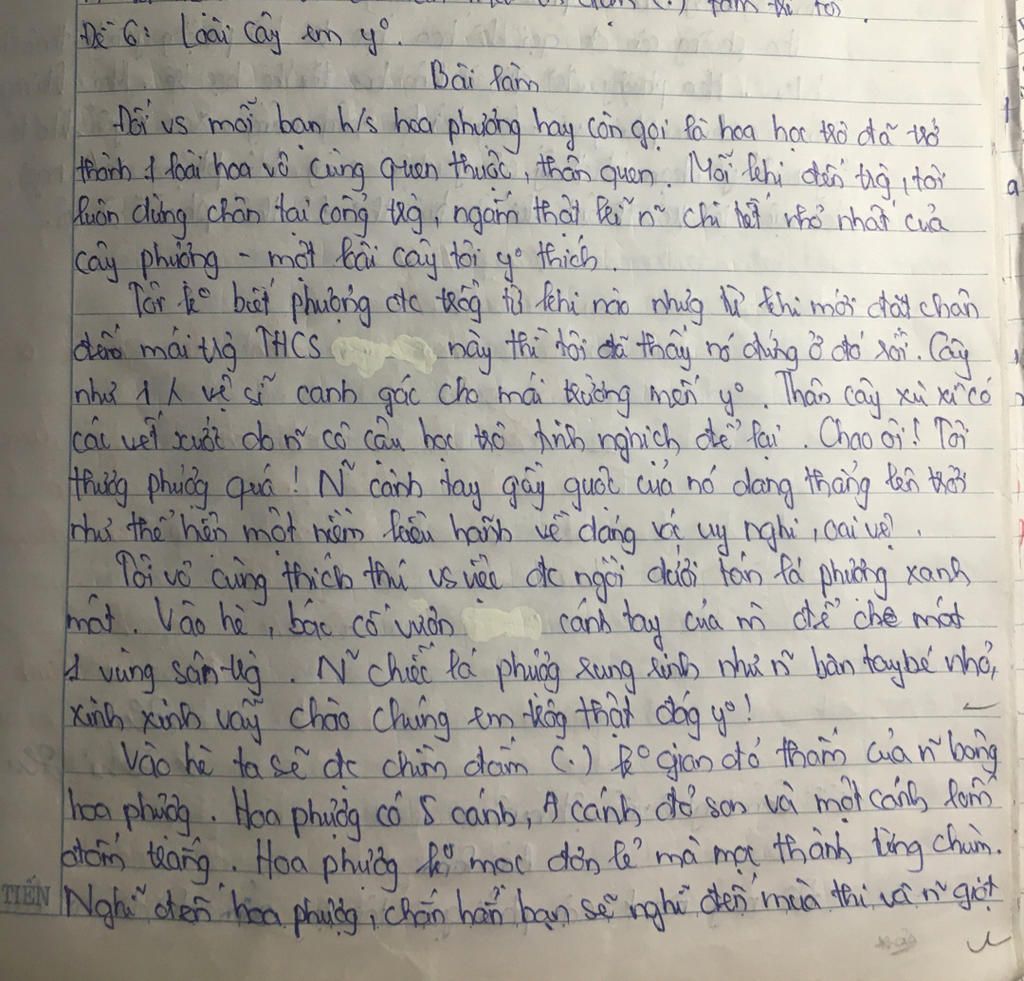 Đề 6: Loài cây em yº.
Bài làm
Đối vs mỗi bạn h/s hoa phượng hay còn gọi là hoa học trò đã trở
thành 1 loài hoa vô cùng quen thuộc, thân quen. Mỗi khi đến trg, tôi
luôn dừng chân tại cổng trg, ngắm thật kĩ n~ chi tiết nhỏ nhất của
cây phượng - một loài cây tôi yº thích.
Tôi kº biết phượng đc trồng từ khi nào nhưg từ khi mới đặt chân
đến mái trg THCS này thì tôi đã thấy nó đứng ở đó rồi. Cây
như 1 vệ sĩ canh gác cho mái trường mến yº. Thân cây xù xì có
các vết xướt do n~ cô cậu học trò tinh nghịch để lại. Chao ôi! Tôi
thươg phượg quá! N~ cành tay gầy guột của nó dang thẳng lên trời
như thể hiện một niềm kiêu hãnh về dáng vẻ uy nghi, oai vệ.
Tôi vô cùng thích thú vs việc đc ngồi dưới tán lá phượng xanh
mát. Vào hè, bác cố vươn cánh tay của m` để che mát
1 vùng sân trg. N~ chiếc lá phượg rung rinh như n~ bàn tay bé nhỏ,
xinh xinh vẫy chào chúng em trôg thật đág yº!
Vào hè ta sẽ đc chìm đắm (.) kº gian đỏ thắm của n~ bông
hoa phượg. Hoa phượg có 5 cánh, 4 cánh đỏ son và một cánh lốm
đốm trắng. Hoa phượg kº mọc đơn lẻ mà mọc thành từng chùm.
TIẾN
Nghĩ đến hoa phượg, chắn hẳn bạn sẽ nghĩ đến mùa thi và n~ giọt